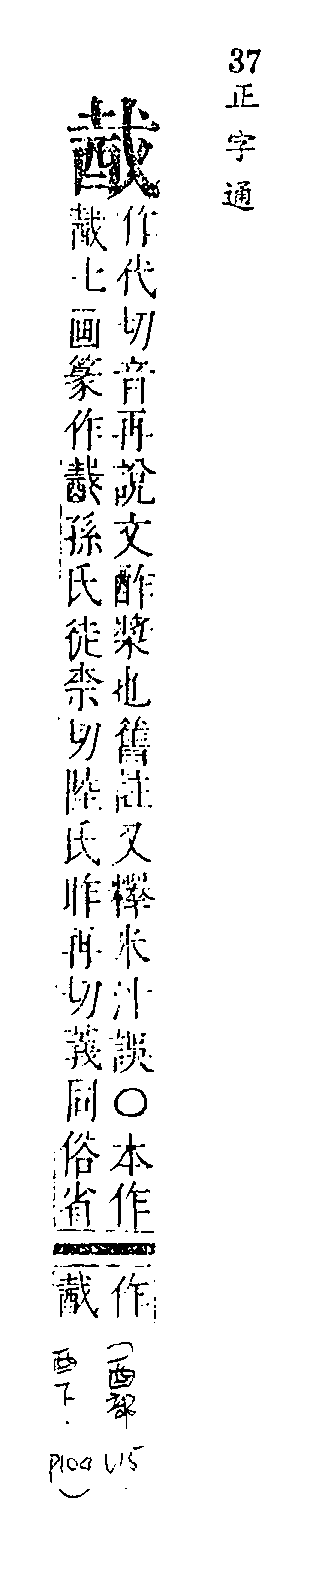 37 正字通
酨
作代切音再說文酢漿也舊註又櫸米汁誤〇本作
酨七画篆作酨孫氏徒柰切陸氏昨再切義同俗省
作
酨
(酉部 L15
酉下. P104)